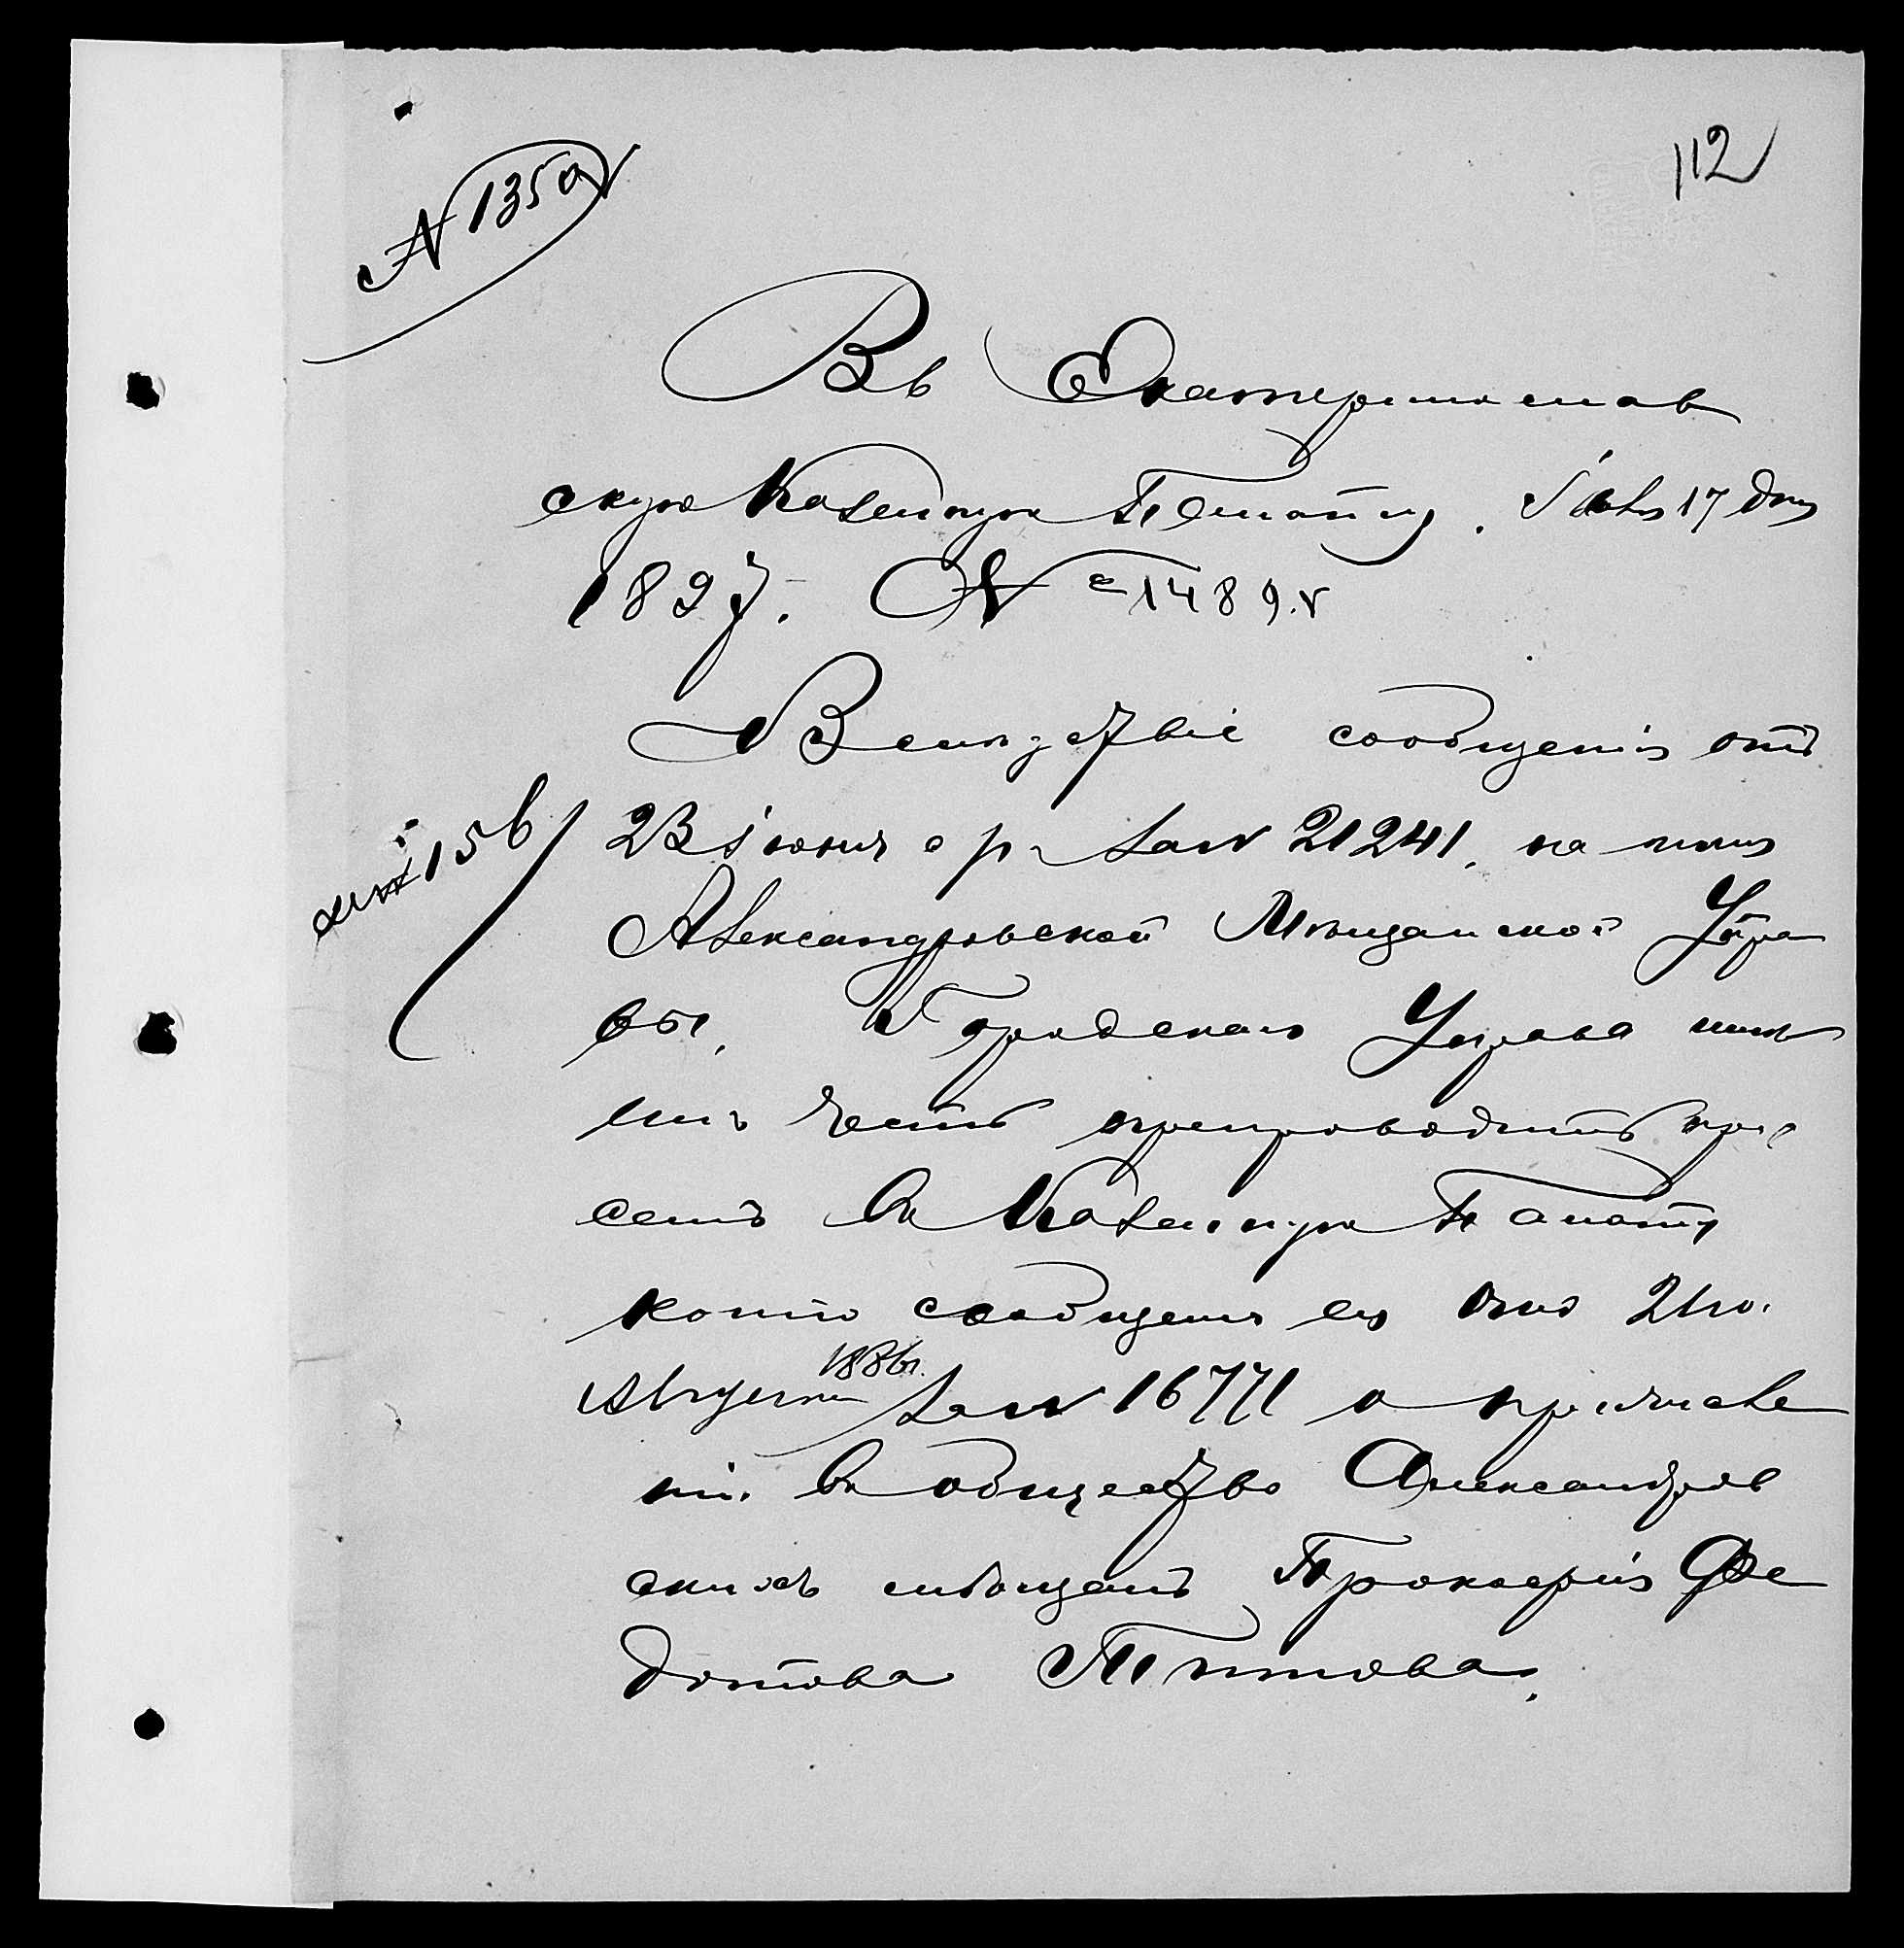 № 1350
112
Въ Екатеринослав
скую Казенную Палату. Іюля 17 дня
1897. № 1489.
Вслѣдствіе сообщенія отъ
23 іюня с г за № 21241, на имя
156
Александровской Мѣщанской Упра
вы, Городская Управа имѣ
етъ честь препроводить при
семъ въ Казенную Палату
копію сообщенія ея отъ 21го
Августа 1886г. за № 16771 о причисле
ніи въ общество Александров
скихъ мѣщанъ Прокофія Фе
дотова Титова.